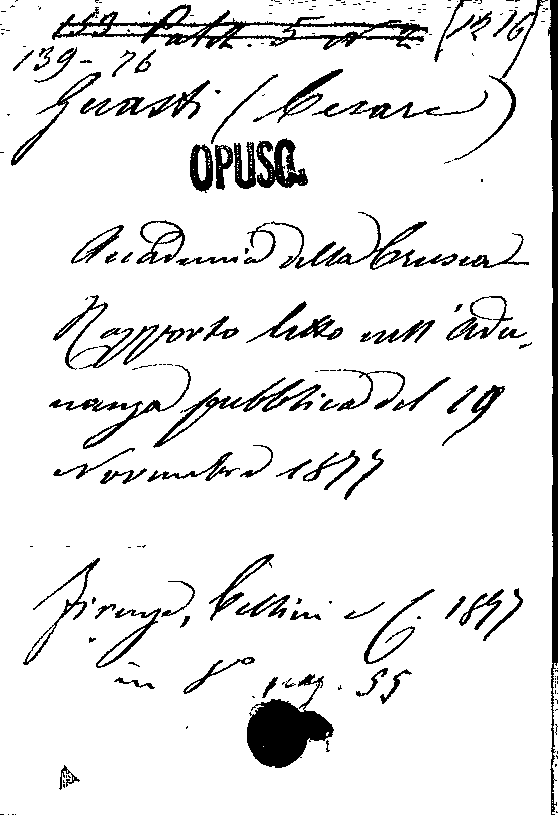 139-76 (1216)
Guasti (Cesare)
OPUSC.
Accademia della Crusca
Rapporto letto nell'adu-
nanza pubblica del 19
Novembre 1877
Firenze, Cellini e C. 1877
in 8° pag. 55